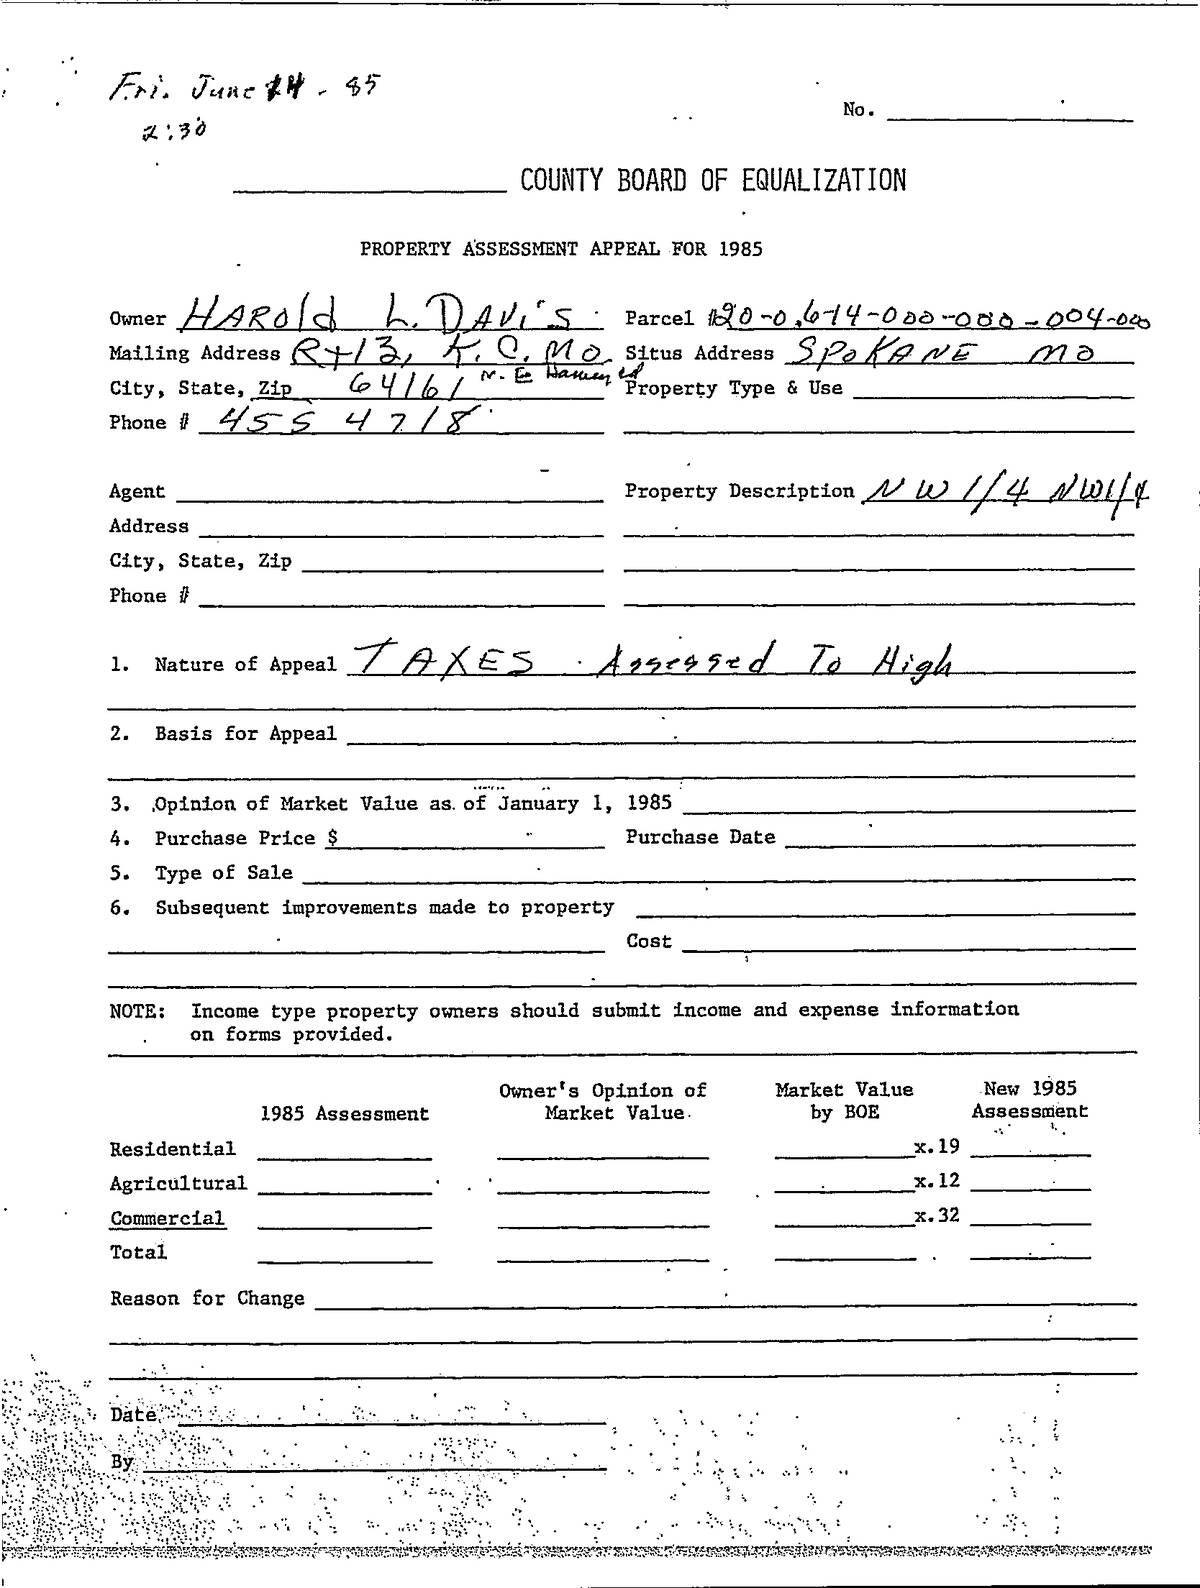 Fri. June 14 - 85
2:30
No.
COUNTY BOARD OF EQUALIZATION
PROPERTY ASSESSMENT APPEAL FOR 1985
Owner HAROld L. DAViS Parcel #20-0.6-14-000-000-004-000
Mailing Address Rt 13, K.C. MO Situs Address SPOKANE MO
City, State, Zip 64161 N.E. Property Type & Use
Phone # 455 4718
Agent Property Description NW 1/4 NW1/4
Address
City, State, Zip
Phone #
1. Nature of Appeal TAXES Assessed To High
2. Basis for Appeal
3. Opinion of Market Value as of January 1, 1985
4. Purchase Price $ Purchase Date
5. Type of Sale
6. Subsequent improvements made to property
Cost
NOTE: Income type property owners should submit income and expense information
on forms provided.
Owner's Opinion of Market Value New 1985
1985 Assessment Market Value by BOE Assessment
Residential x.19
Agricultural x.12
Commercial x.32
Total
Reason for Change
Date
By